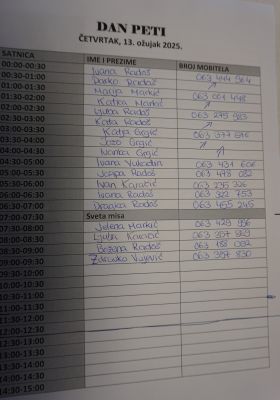 DAN PETI
ČETVRTAK, 13. ožujak 2025.
SATNICA IME I PREZIME BROJ MOBITELA
00:00-00:30 Ivana Radoš
00:30-01:00 Darko Radoš 063 444 564
01:00-01:30 Marija Markić
01:30-02:00 Katka Markić 063 001 448
02:00-02:30 Ljuba Radoš
02:30-03:00 Kata Radoš 063 275 983
03:00-03:30 Katja Grgić
03:30-04:00 Jozo Grgić 063 377 816
04:00-04:30 Ivanka Grgić
04:30-05:00 Ivana Vukadin 063 431 606
05:00-05:30 Josipa Radoš 063 478 082
05:30-06:00 Ivan Karačić 063 235 326
06:00-06:30 Ivana Radoš 063 322 753
06:30-07:00 Dragica Radoš 063 455 245
07:00-07:30 Sveta misa
07:30-08:00 Jelena Markić 063 429 956
08:00-08:30 Ljuba Karačić 063 357 929
08:30-09:00 Božana Radoš 063 188 092
09:00-09:30 Zdravko Vujević 063 357 830
09:30-10:00
10:00-10:30
10:30-11:00
11:00-11:30
11:30-12:00
12:00-12:30
12:30-13:00
13:00-13:30
13:30-14:00
14:00-14:30
14:30-15:00